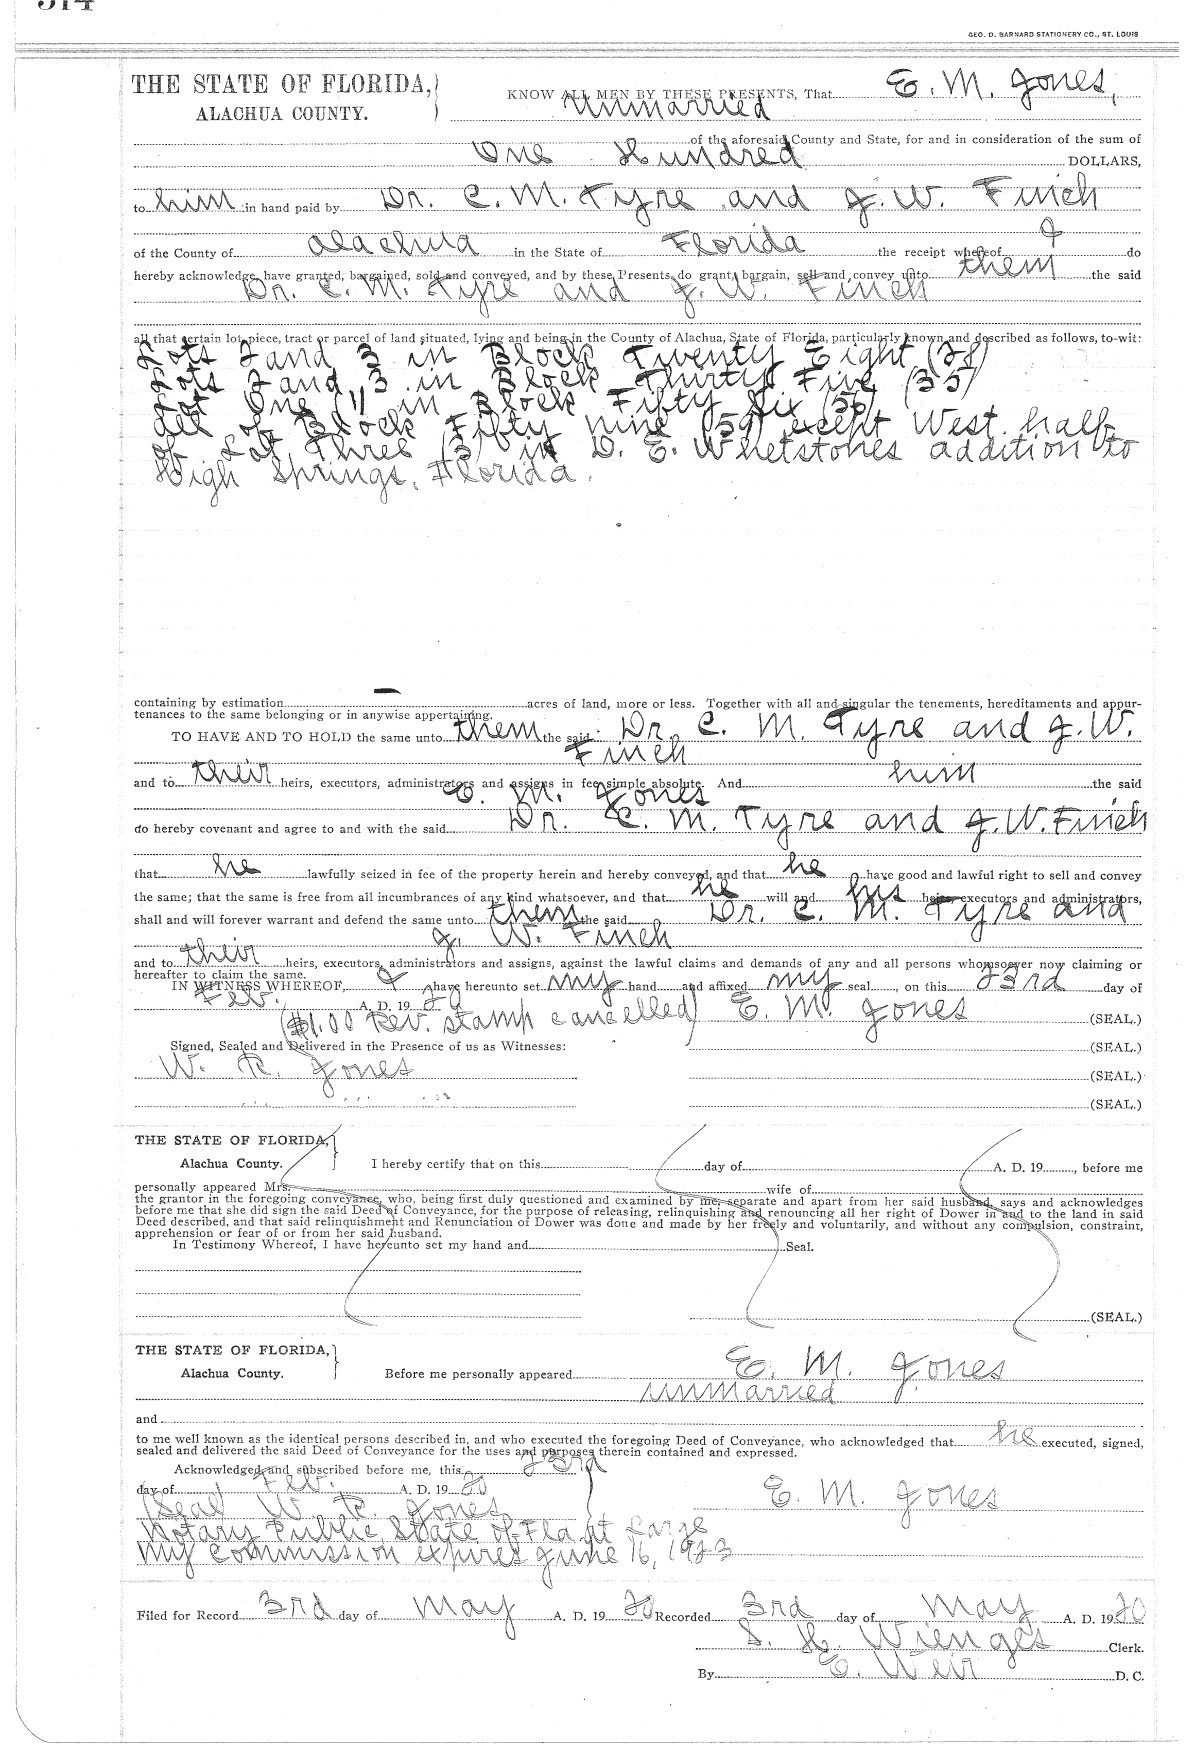 GEO. D. BARNARD STATIONERY CO., ST. LOUIS
THE STATE OF FLORIDA,
ALACHUA COUNTY.
KNOW ALL MEN BY THESE PRESENTS, That E. M. Jones,
unmarried
of the aforesaid County and State, for and in consideration of the sum of
One Hundred DOLLARS,
to him in hand paid by Dr. C. M. Tyre and J. W. Finch
of the County of Alachua in the State of Florida the receipt whereof I do
hereby acknowledge, have granted, bargained, sold and conveyed, and by these Presents, do grant, bargain, sell and convey unto them the said
Dr. C. M. Tyre and J. W. Finch
all that certain lot, piece, tract or parcel of land situated, lying and being in the County of Alachua, State of Florida, particularly known and described as follows, to-wit:
Lots 2 and 3 in Block Twenty Eight (28)
Lots 2 and 3 in Block Thirty Five (35)
Lot One (1) in Block Fifty Six (56)
All of Block Fifty nine (59) except West half
of Lot Three (3) in D. E. Whetstones addition to
High Springs, Florida.
containing by estimation — acres of land, more or less. Together with all and singular the tenements, hereditaments and appur-
tenances to the same belonging or in anywise appertaining.
TO HAVE AND TO HOLD the same unto them the said Dr. C. M. Tyre and J. W.
Finch
and to their heirs, executors, administrators and assigns in fee simple absolute. And him the said
E. M. Jones
do hereby covenant and agree to and with the said Dr. C. M. Tyre and J. W. Finch
that he lawfully seized in fee of the property herein and hereby conveyed, and that he have good and lawful right to sell and convey
the same; that the same is free from all incumbrances of any kind whatsoever, and that he will and his heirs, executors and administrators,
shall and will forever warrant and defend the same unto them the said Dr. C. M. Tyre and
J. W. Finch
and to their heirs, executors, administrators and assigns, against the lawful claims and demands of any and all persons whomsoever now claiming or
hereafter to claim the same.
IN WITNESS WHEREOF, I have hereunto set my hand and affixed my seal, on this 23rd day of
Feb. A. D. 19 20
($1.00 Rev. stamp cancelled) E. M. Jones (SEAL.)
Signed, Sealed and Delivered in the Presence of us as Witnesses: (SEAL.)
W. R. Jones (SEAL.)
(SEAL.)
THE STATE OF FLORIDA,
Alachua County. I hereby certify that on this day of A. D. 19 , before me
personally appeared Mrs. wife of
the grantor in the foregoing conveyance, who, being first duly questioned and examined by me, separate and apart from her said husband, says and acknowledges
before me that she did sign the said Deed of Conveyance, for the purpose of releasing, relinquishing and renouncing all her right of Dower in and to the land in said
Deed described, and that said relinquishment and Renunciation of Dower was done and made by her freely and voluntarily, and without any compulsion, constraint,
apprehension or fear of or from her said husband.
In Testimony Whereof, I have hereunto set my hand and Seal.
(SEAL.)
THE STATE OF FLORIDA,
Alachua County. Before me personally appeared E. M. Jones
unmarried
and
to me well known as the identical persons described in, and who executed the foregoing Deed of Conveyance, who acknowledged that he executed, signed,
sealed and delivered the said Deed of Conveyance for the uses and purposes therein contained and expressed.
Acknowledged and subscribed before me, this 23rd
day of Feb. A. D. 19 20
(Seal) W. R. Jones E. M. Jones
Notary Public State of Fla at Large
My commission expires June 16, 1923
Filed for Record 3rd day of May A. D. 19 20 Recorded 3rd day of May A. D. 19 20
S. H. Wienges Clerk.
By E. Weir D. C.